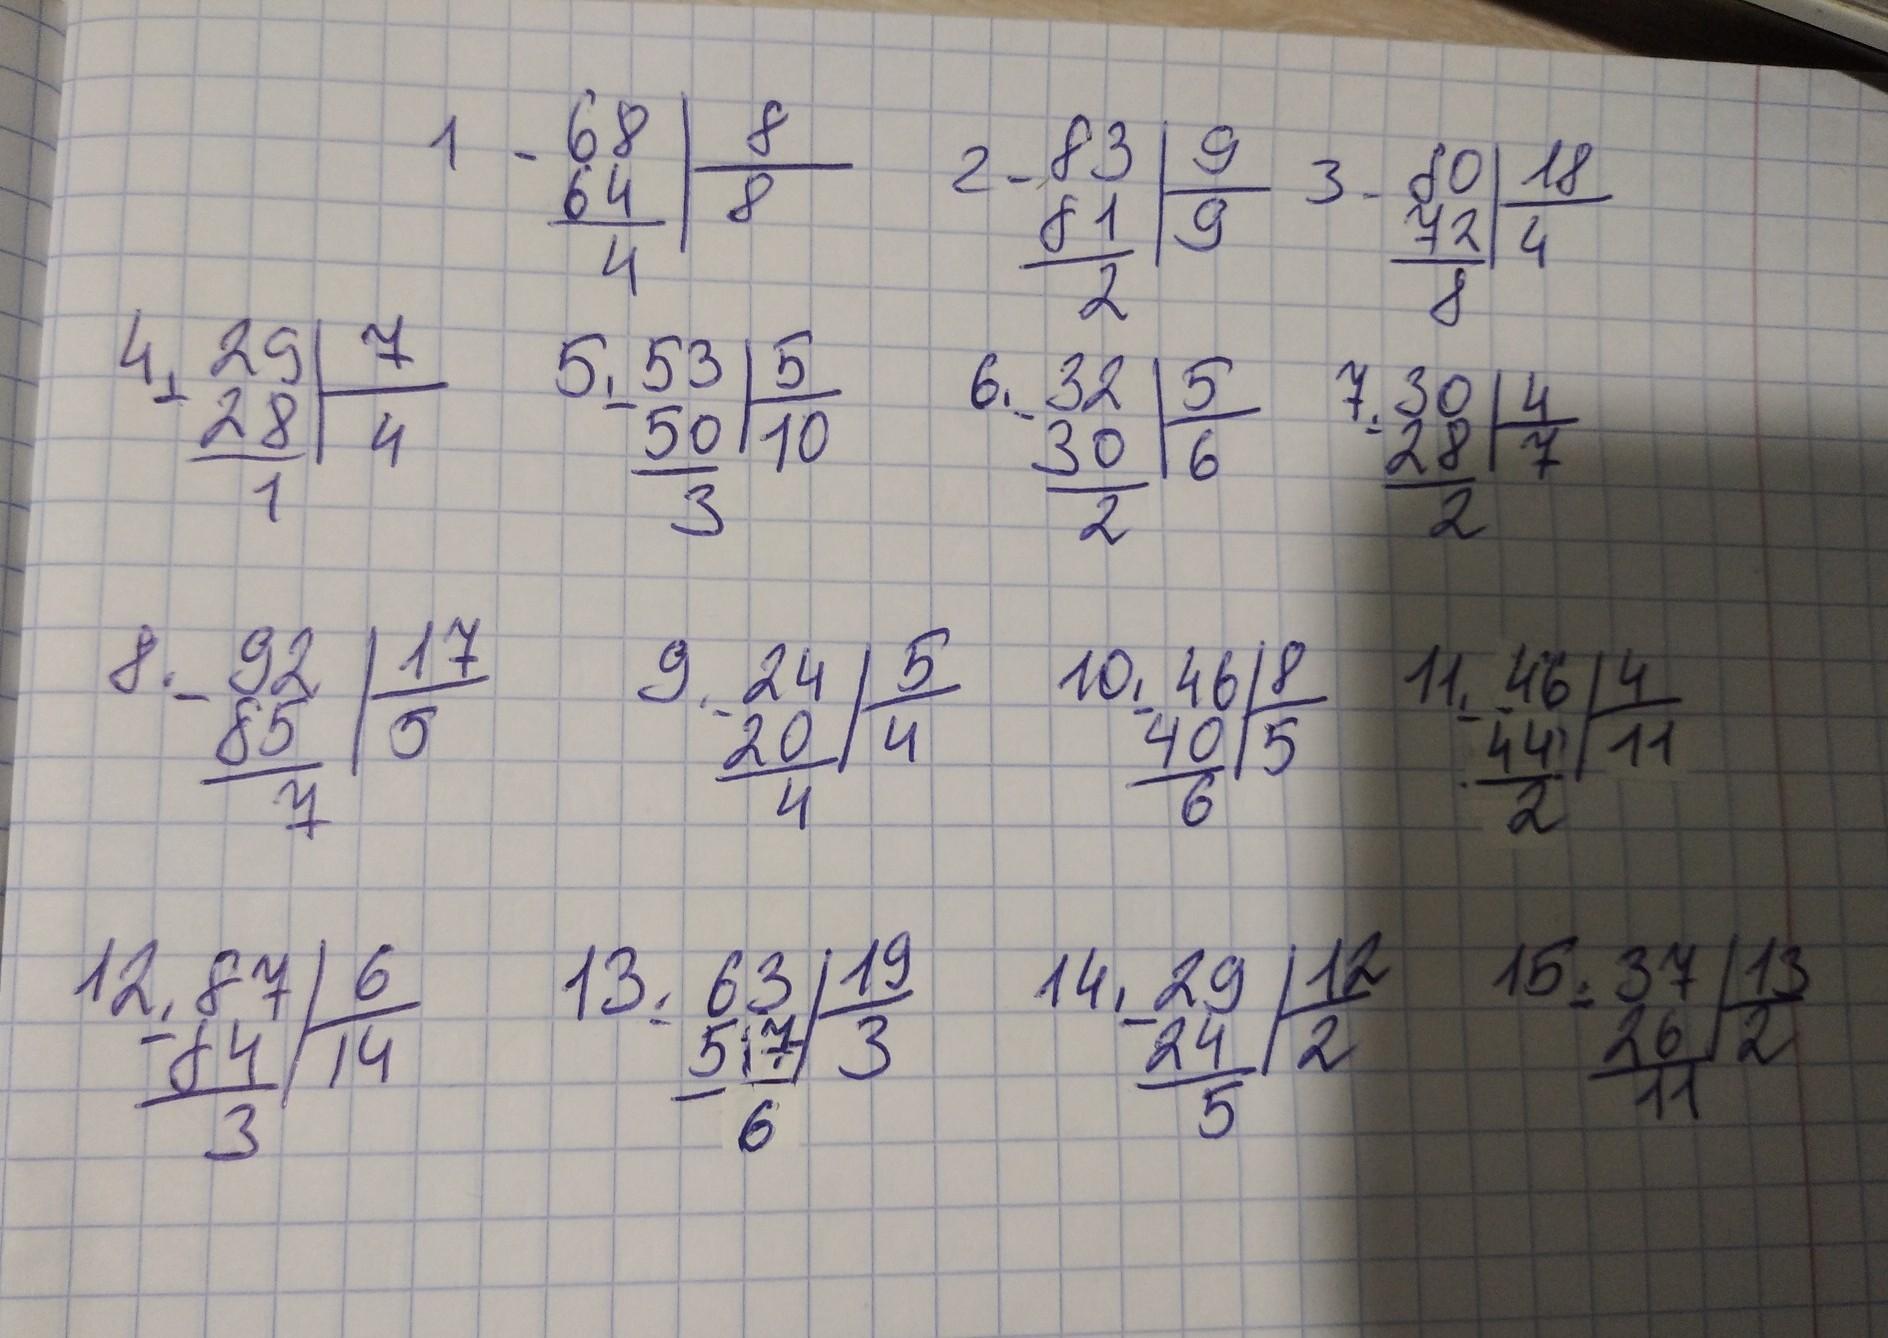 1 - 68 | 8 2 - 83 | 9 3 - 80 | 18
64 | 8 81 | 9 72 | 4
4 2 8
4. - 29 | 7 5. - 53 | 5 6. - 32 | 5 7. - 30 | 4
28 | 4 50 | 10 30 | 6 28 | 7
1 3 2 2
8. - 92 | 17 9. - 24 | 5 10. - 46 | 8 11. - 46 | 4
85 | 5 20 | 4 40 | 5 44 | 11
7 4 6 2
12. - 87 | 6 13. - 63 | 19 14. - 29 | 12 15. - 37 | 13
84 | 14 57 | 3 24 | 2 26 | 2
3 6 5 11